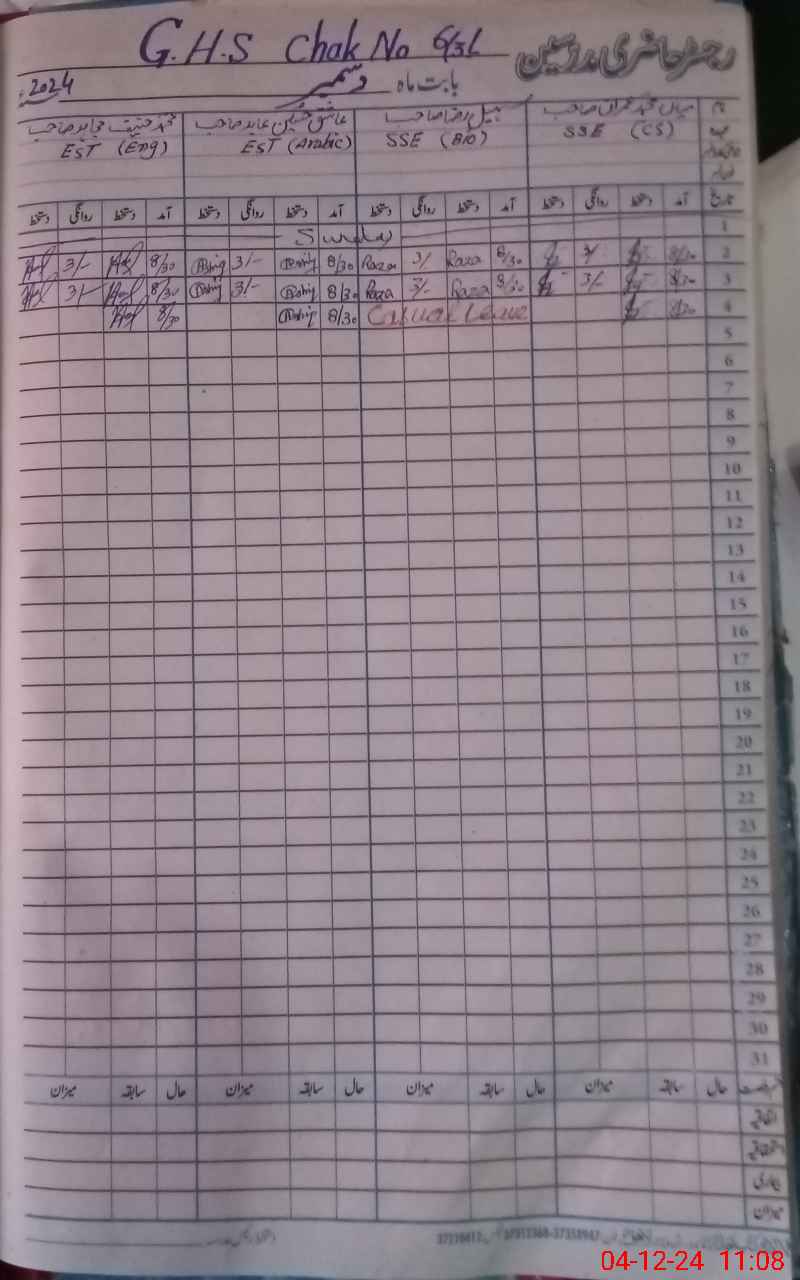 G.H.S Chak No 6/3L رجسٹر حاضری مدرسین
بابت ماہ دسمبر 2024
نام میاں محمد عمران صاحب نبیل رضا صاحب عاشق حسین عابد صاحب محمد حنیف مجاہد صاحب
SSE (CS) SSE (Bio) EST (Arabic) EST (Eng)
تاریخ آمد دستخط روانگی دستخط آمد دستخط روانگی دستخط آمد دستخط روانگی دستخط آمد دستخط روانگی دستخط
1 Sunday
2 8/30 3/- 8/30 Raza 3/- Raza 8/30 Ashiq 3/- Ashiq 8/30 3/-
3 8/30 3/- 8/30 Raza 3/- Raza 8/30 Ashiq 3/- Ashiq 8/30 3/-
4 8/30 Casual Leave 8/30 Ashiq 8/30
5
6
7
8
9
10
11
12
13
14
15
16
17
18
19
20
21
22
23
24
25
26
27
28
29
30
31
رخصت حال سابقہ میزان حال سابقہ میزان حال سابقہ میزان حال سابقہ میزان
اتفاقیہ
استحقاقیہ
بیماری
میزان
04-12-24 11:08